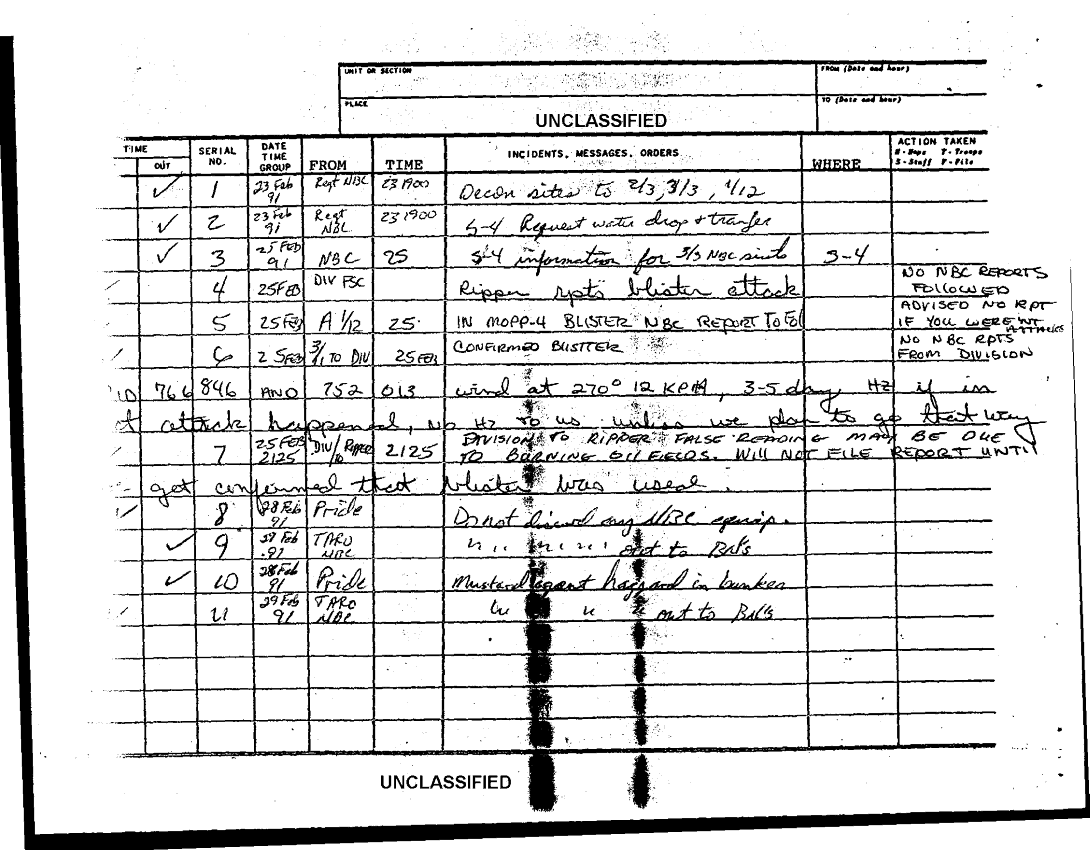 UNIT OR SECTION
FROM (Date and hour)
PLACE
TO (Date and hour)
UNCLASSIFIED
TIME OUT SERIAL NO. DATE TIME GROUP FROM TIME INCIDENTS, MESSAGES, ORDERS WHERE ACTION TAKEN
M - Maps T - Troops
S - Staff F - File
✓ 1 23 Feb 91 Regt NBC 23 1900 Decon sites to 2/3, 3/3, 1/12
✓ 2 23 Feb 91 Regt NBC 23 1900 S-4 Request water drop & tranfer
✓ 3 25 FEB 91 NBC 25 S-4 information for 3/3 NBC suits S-4
4 25 FEB DIV FSC Ripper rpts blister attack NO NBC REPORTS FOLLOWED
5 25 FEB A 1/12 25 IN MOPP-4 BLISTER NBC REPORT TO FOL ADVISED NO RPT IF YOU WEREN'T ATTACKED
6 25 FEB 3/11 TO DIV 25 FEB CONFIRMED BLISTER NO NBC RPTS FROM DIVISION
766 846 AND 752 013 wind at 270° 12 KPH, 3-5 day HZ if in
attack happened, no HZ to us unless we plan to go that way
7 25 FEB 2125 DIV/TO Ripper 2125 DIVISION TO RIPPER FALSE READING MAY BE DUE
TO BURNING OIL FIELDS. WILL NOT FILE REPORT UNTIL
get confirmed that blister was used.
8 28 Feb 91 Pride Do not discard any NBC equip.
✓ 9 Feb 91 TARO NBC " " " " " out to BN's
✓ 10 28 Feb 91 Pride Mustard agent hazzard in bunker
11 29 Feb 91 TARO NBC " " " out to BN's
UNCLASSIFIED